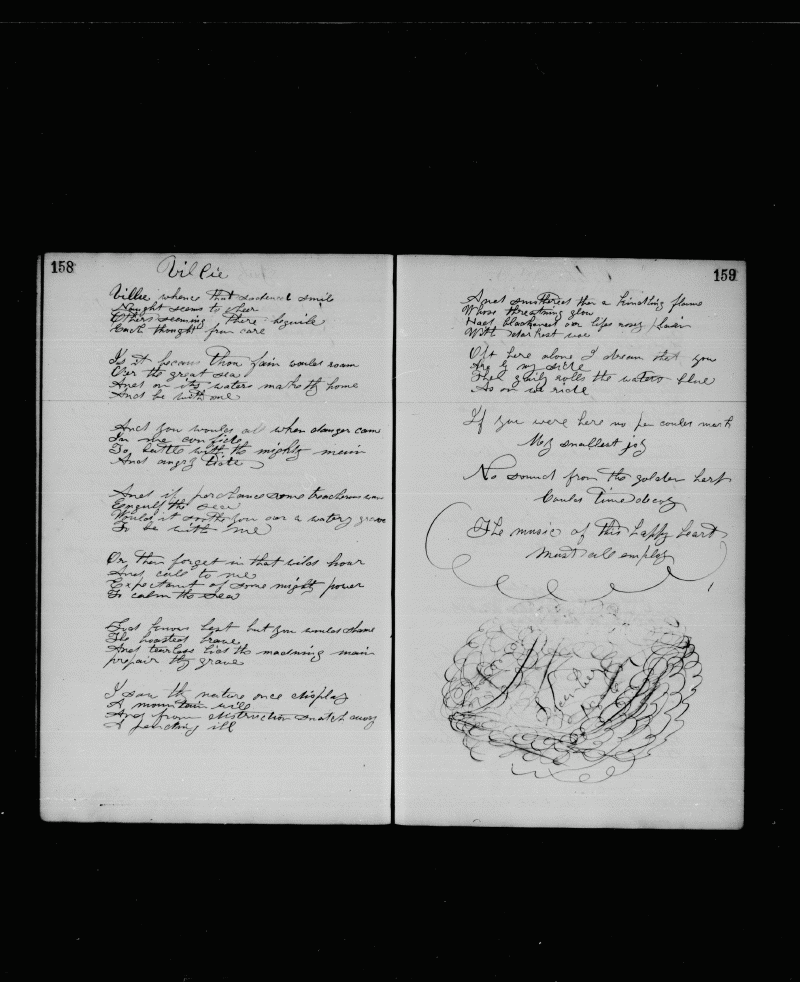 158
Villie
Villie whence that sadened smile
Nought seems to cheer
Others seeming there beguile
Each thought from care
Is it because thou fain would roam
Over the great sea
And on its waters make thy home
And be with me
And you would all when danger came
In me confide
To battle with the mighty main
And angry tide
And if perchance some treacherous
Engulf the sea
Would it soothe you a watery grave
To be with me
Or then forget in that wild hour
And call to me
Expectant of some mighty power
To calm the sea
God knows best but you would shame
The boasted brave
And tearless bid the madening main
prepair thy grave
I saw the nature once display
A mountain will
And from destruction snatch away
A ill
159
And smothered then a kindling flame
Whose threatning glow
Had blackened our lips
With darkest woe
Oft here alone I dream that you
Are by my side
That gaily rolls the waters blue
As on we ride
If you were here no pen could mark
My smallest joy
No sound from the golden harp
Could Time decoy
The music of this happy heart
Must all employ